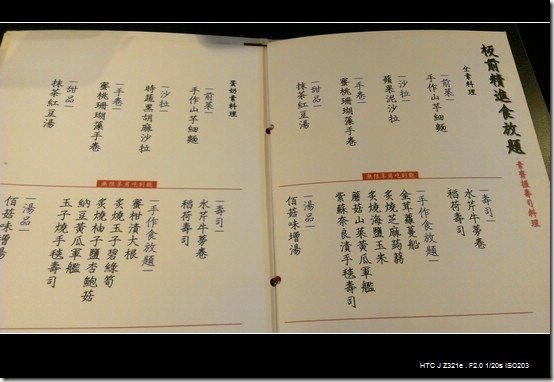 板前精進食放題
握壽司料理
全素料理
|前菜|
手作山芋細麵
|沙拉|
蘋果泥沙拉
|手卷|
蜜桃珊瑚藻手卷
|甜品|
抹茶紅豆湯
無限享用吃到飽
|壽司|
水芹牛蒡卷
稻荷壽司
|手作食放題|
金茸蘿蔓船
炙燒芝麻蒟蒻
炙燒海鹽玉米
蘑菇山菜黃瓜軍艦
紫蘇奈良漬手毬壽司
|湯品|
佰菇味增湯
蛋奶素料理
|前菜|
手作山芋細麵
|沙拉|
時蔬黑胡麻沙拉
|手卷|
蜜桃珊瑚藻手卷
|甜品|
抹茶紅豆湯
無限享用吃到飽
|壽司|
水芹牛蒡卷
稻荷壽司
|手作食放題|
蜜柑漬大根
炙燒玉子碧綠筍
炙燒柚子鹽杏鮑菇
納豆黃瓜軍艦
玉子燒手毬壽司
|湯品|
佰菇味增湯
HTC J Z321e . F2.0 1/20s ISO203